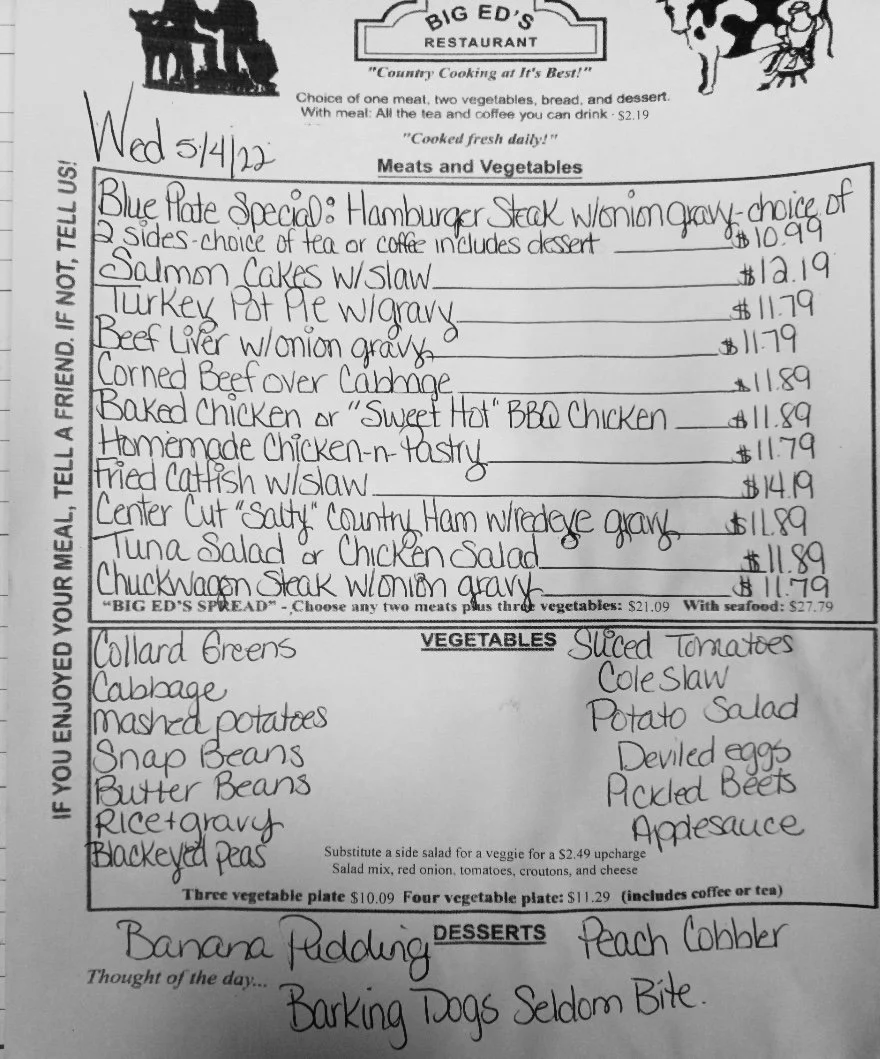 BIG ED'S
RESTAURANT
"Country Cooking at It's Best!"
Choice of one meat, two vegetables, bread, and dessert.
With meal: All the tea and coffee you can drink - $2.19
"Cooked fresh daily!"
Wed 5/4/22
Meats and Vegetables
IF YOU ENJOYED YOUR MEAL, TELL A FRIEND. IF NOT, TELL US!
Blue Plate Special: Hamburger Steak w/onion gravy-choice of
2 sides-choice of tea or coffee includes dessert $10.99
Salmon Cakes w/slaw $12.19
Turkey Pot Pie w/gravy $11.79
Beef Liver w/onion gravy $11.79
Corned Beef over Cabbage $11.89
Baked Chicken or "Sweet Hot" BBQ Chicken $11.89
Homemade Chicken-n-Pastry $11.79
Fried Catfish w/slaw $14.19
Center Cut "Salty" Country Ham w/redeye gravy $11.89
Tuna Salad or Chicken Salad $11.89
Chuckwagon Steak w/onion gravy $11.79
"BIG ED'S SPREAD" - Choose any two meats plus three vegetables: $21.09 With seafood: $27.79
VEGETABLES
Collard Greens
Cabbage
mashed potatoes
Snap Beans
Butter Beans
Rice+gravy
Blackeyed peas
Sliced Tomatoes
Cole Slaw
Potato Salad
Deviled eggs
Pickled Beets
Applesauce
Substitute a side salad for a veggie for a $2.49 upcharge
Salad mix, red onion, tomatoes, croutons, and cheese
Three vegetable plate $10.09 Four vegetable plate: $11.29 (includes coffee or tea)
DESSERTS
Banana Pudding
Peach Cobbler
Thought of the day...
Barking Dogs Seldom Bite.